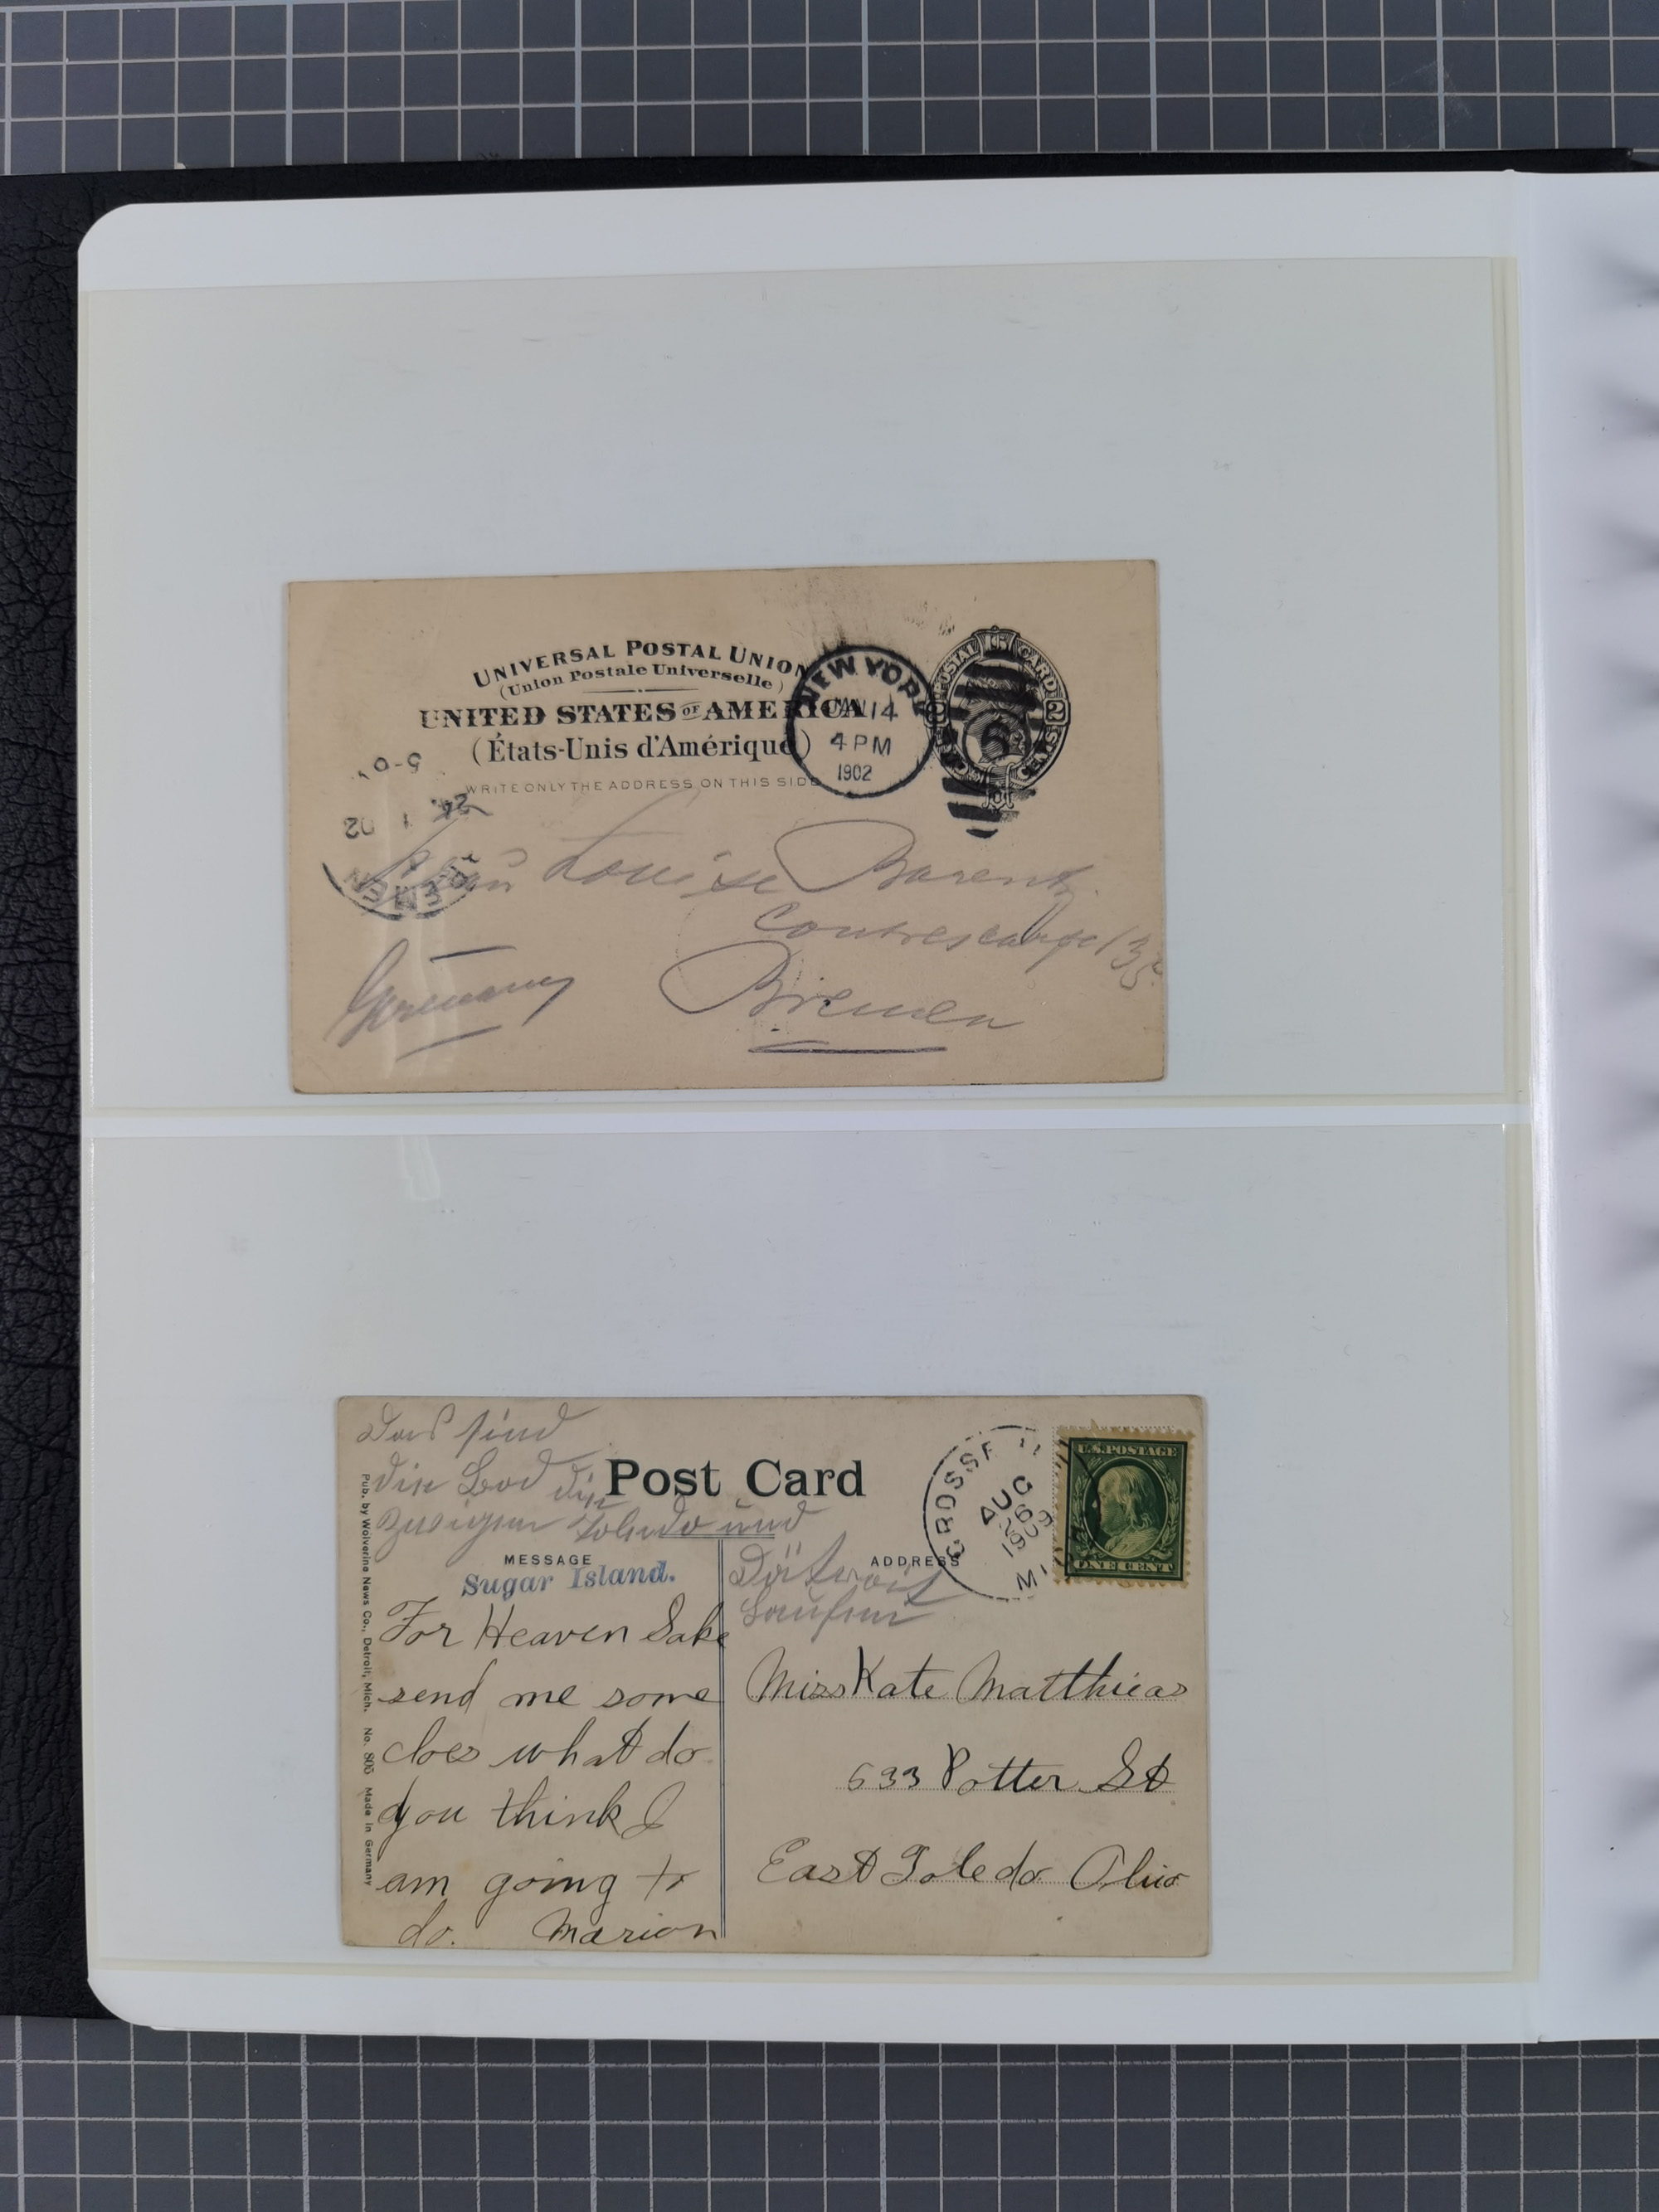 UNIVERSAL POSTAL UNION
(Union Postale Universelle)
UNITED STATES OF AMERICA
(États-Unis d'Amérique)
WRITE ONLY THE ADDRESS ON THIS SIDE
NEW YORK
JAN 14
4 PM
1902
6
POSTAL CARD
2 CENTS
5-6N
24. 1 02
BREMEN
Louise Barentz.
Contrescarpe 135
Germany
Bremen
Das sind
die Bod die
zwischen Toledo und
Deteroit
laufen
Post Card
MESSAGE
ADDRESS
Sugar Island.
GROSSE
AUG
26
1909
MI
U.S. POSTAGE
ONE CENT
Pub. by Wolverine News Co., Detroit, Mich. No. 805 Made in Germany
For Heaven Sake
send me some
cloes what do
you think I
am going to
do. Marion
Miss Kate Matthias
633 Potter St
East Toledo Ohio